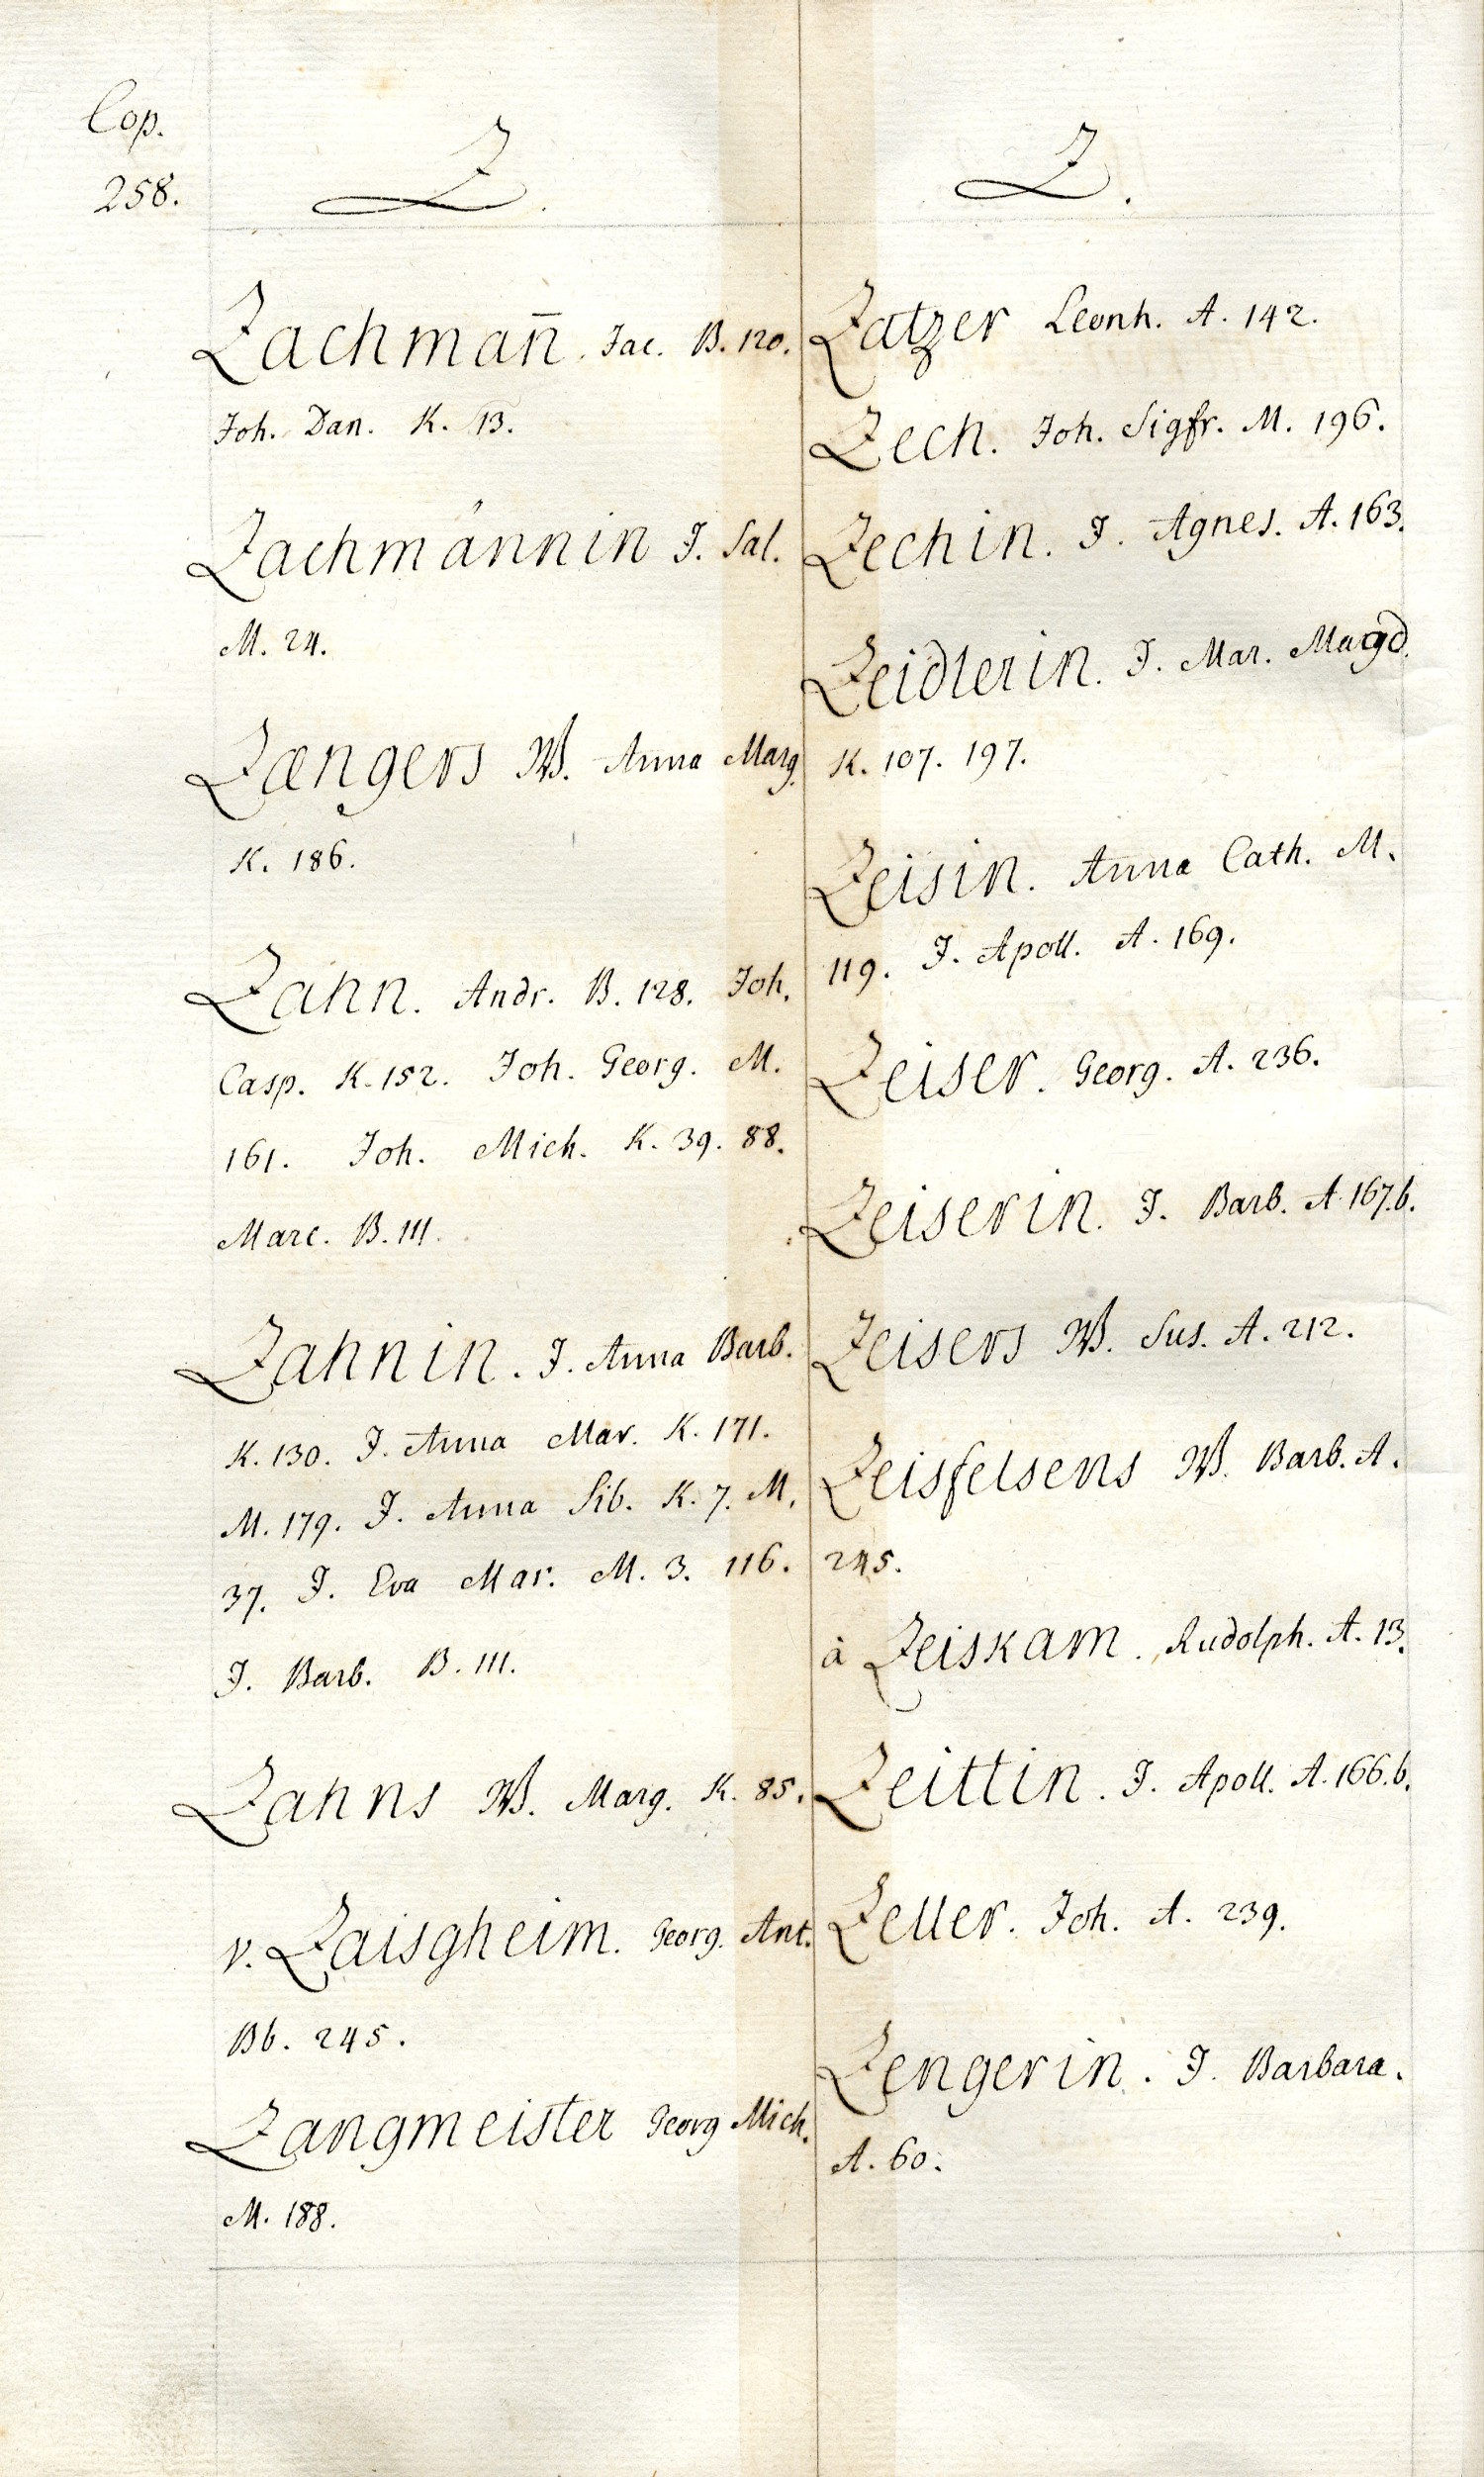 Cop.
258.
Z.
Zachman̄. Jac. B. 120.
Joh. Dan. K. 13.
Zachmännin J. Sal.
M. 24.
Zængers W. Anna Marg.
K. 186.
Zahn. Andr. B. 128. Joh.
Casp. K. 152. Joh. Georg. M.
161. Joh. Mich. K. 39. 88.
Marc. B. 111.
Zahnin. J. Anna Barb.
K. 130. J. Anna Mar. K. 171.
M. 179. J. Anna Sib. K. 7. M.
37. J. Eva Mar. M. 3. 116.
J. Barb. B. 111.
Zahns W. Marg. K. 85.
v. Zaisgheim. Georg. Ant.
Bb. 245.
Zangmeister Georg Mich.
M. 188.
Z.
Zatzer Leonh. A. 142.
Zech. Joh. Sigfr. M. 196.
Zechin. J. Agnes. A. 163.
Zeidlerin. J. Mar. Magd.
K. 107. 197.
Zeisin. Anna Cath. M.
119. J. Apoll. A. 169.
Zeiser. Georg. A. 236.
Zeiserin. J. Barb. A. 167.b.
Zeisers W. Sus. A. 212.
Zeisfelsens W. Barb. A.
245.
à Zeiskam. Rudolph. A. 13.
Zeittin. J. Apoll. A. 166.b.
Zeller. Joh. A. 239.
Zengerin. J. Barbara.
A. 60.